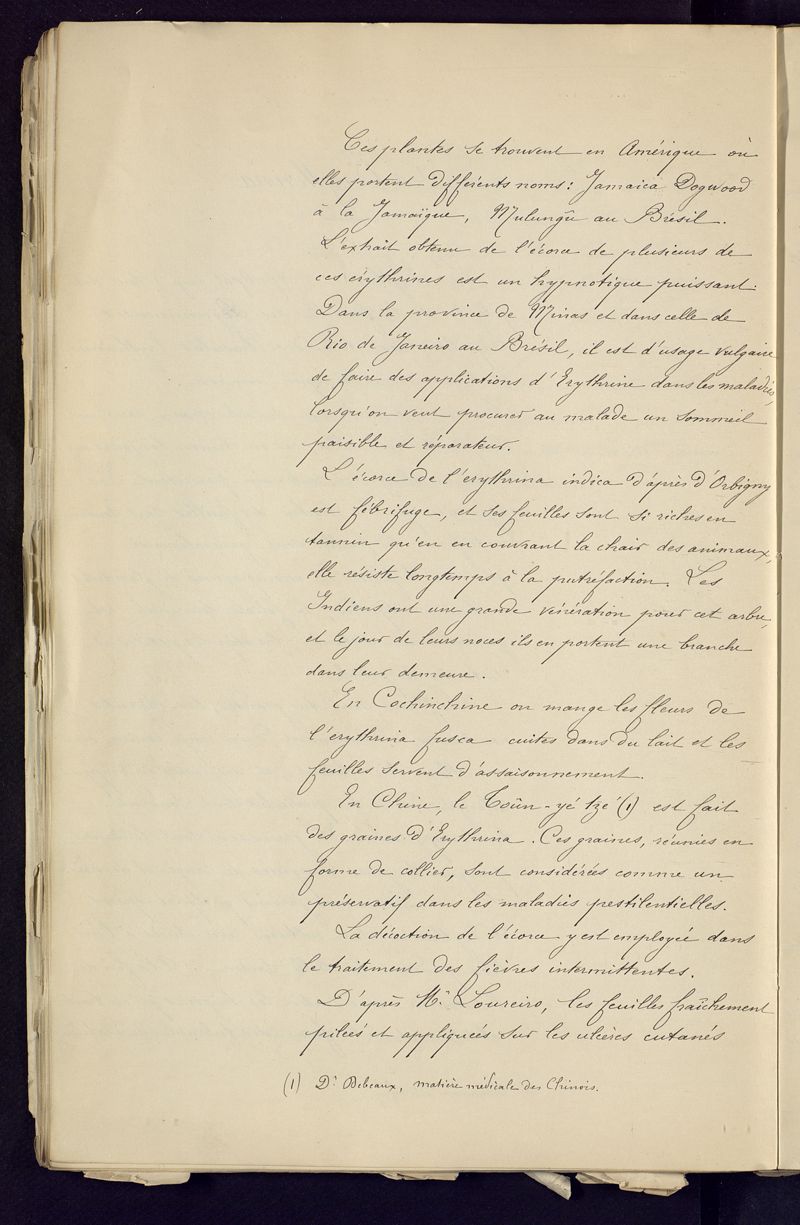 Ces plantes se trouvent en Amérique où
elles portent différents noms: Jamaica Dogwood
à la Jamaïque, Mulungû au Brésil.
L'extrait obtenu de l'écorce de plusieurs de
ces érythrines est un hypnotique puissant.
Dans la province de Minas et dans celle de
Rio de Janeiro au Brésil, il est d'usage vulgaire
de faire des applications d'Erythrine dans les maladies,
lorsqu'on veut procurer au malade un sommeil
paisible et réparateur.
L'écorce de l'erythrina indica d'après d'Orbigny
est fébrifuge, et ses feuilles sont si riches en
tannin qu'en en couvrant la chair des animaux,
elle résiste longtemps à la putréfaction. Les
Indiens ont une grande vénération pour cet arbre,
et le jour de leurs noces ils en portent une branche
dans leur demeure.
En Cochinchine on mange les fleurs de
l'erythrina fusca cuites dans du lait et les
feuilles servent d'assaisonnement.
En Chine, le Toûn-yé tzé (1) est fait
des graines d'Erythrina. Ces graines, réunies en
forme de collier, sont considérées comme un
préservatif dans les maladies pestilentielles.
La décoction de l'écorce y est employée dans
le traitement des fièvres intermittentes.
D'après Mr Loureiro, les feuilles fraîchement
pilées et appliquées sur les ulcères cutanés
(1) Dr Debeaux, matière médicale des Chinois.